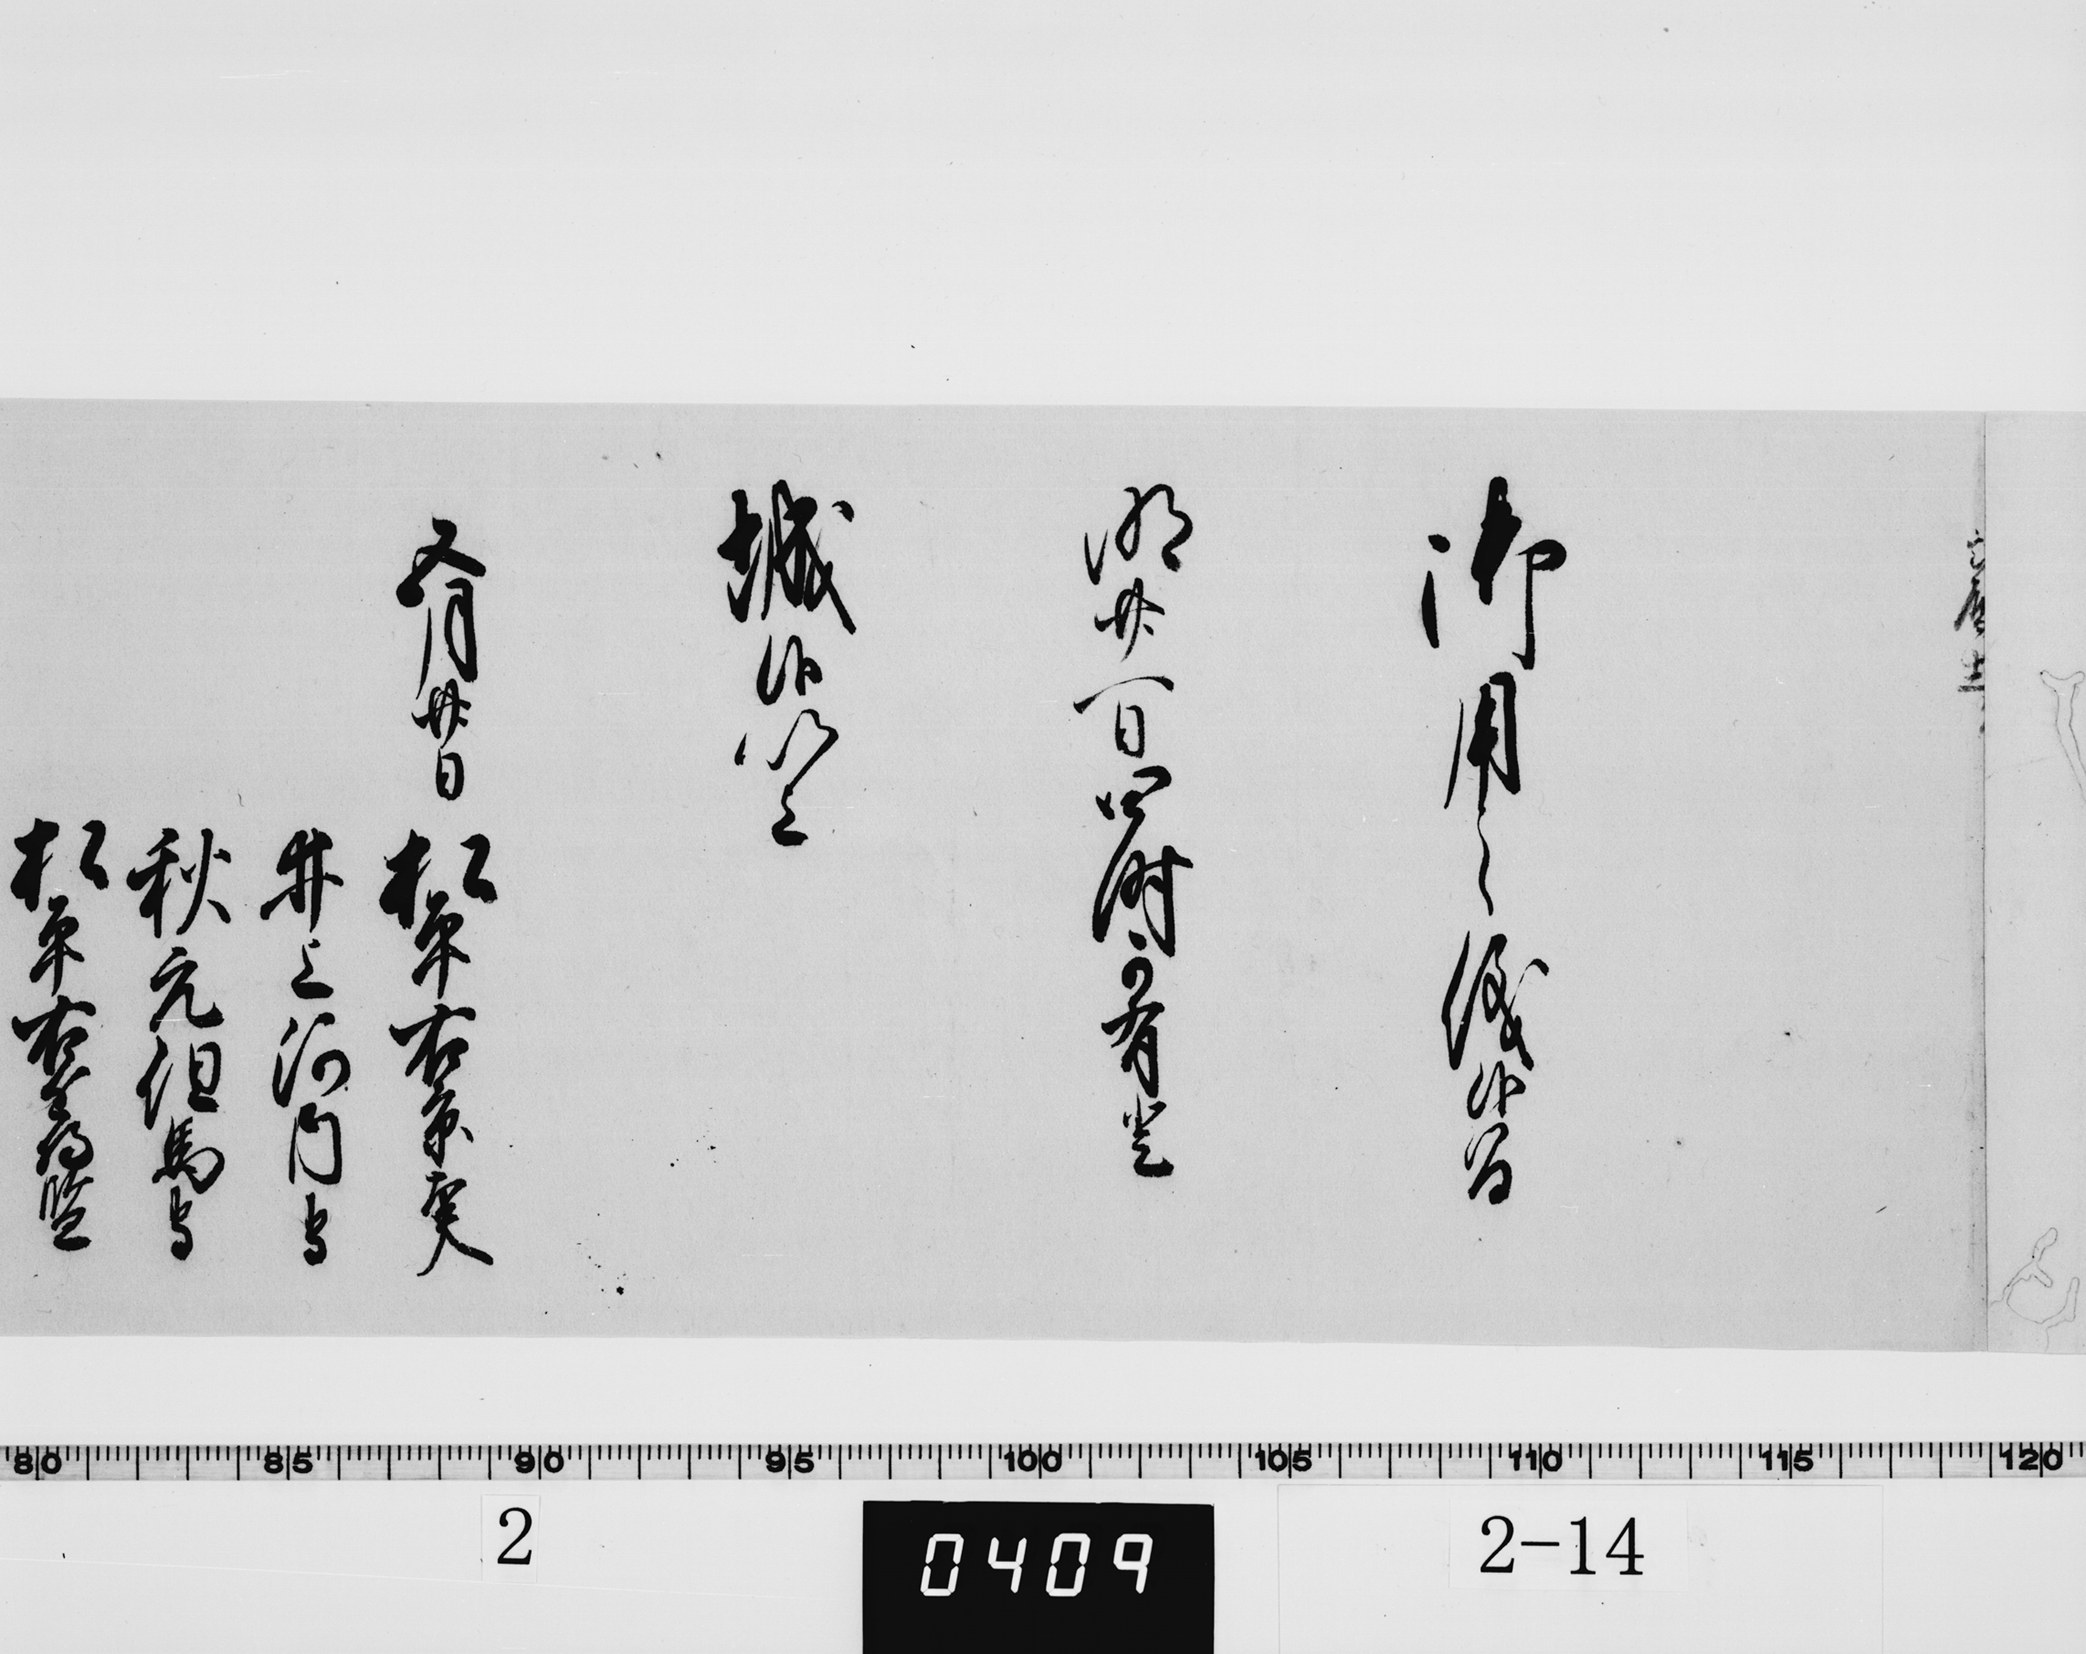 御用之儀候間
明廿一日四時可有登
城候以上
五月廿日
松平右京大夫
井上河内守
秋元但馬守
松平右近将監
80 85 90 95 100 105 110 115 120
2
0409
2-14